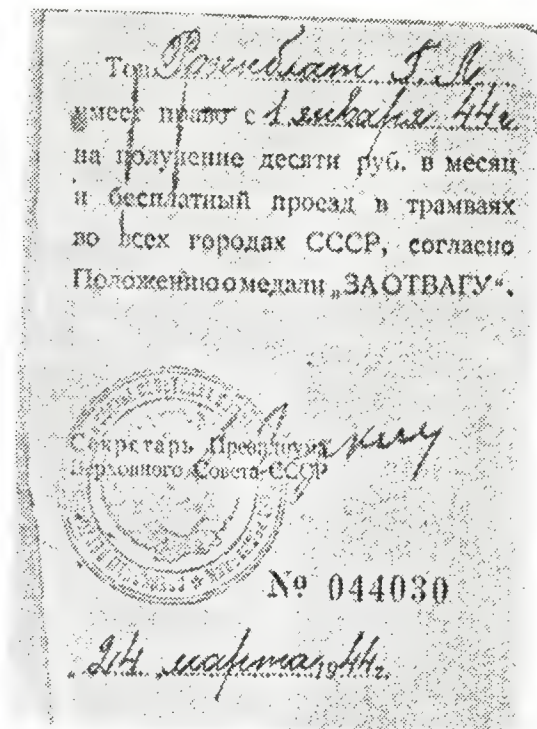 Тов. Розенблат Г. Л.
имеет право с 1 января 44г.
на получение десяти руб. в месяц
и бесплатный проезд в трамваях
во всех городах СССР, согласно
Положению о медали „ЗА ОТВАГУ“.
Секретарь Президиума
Верховного Совета СССР
№ 044030
„24 марта 1944г.